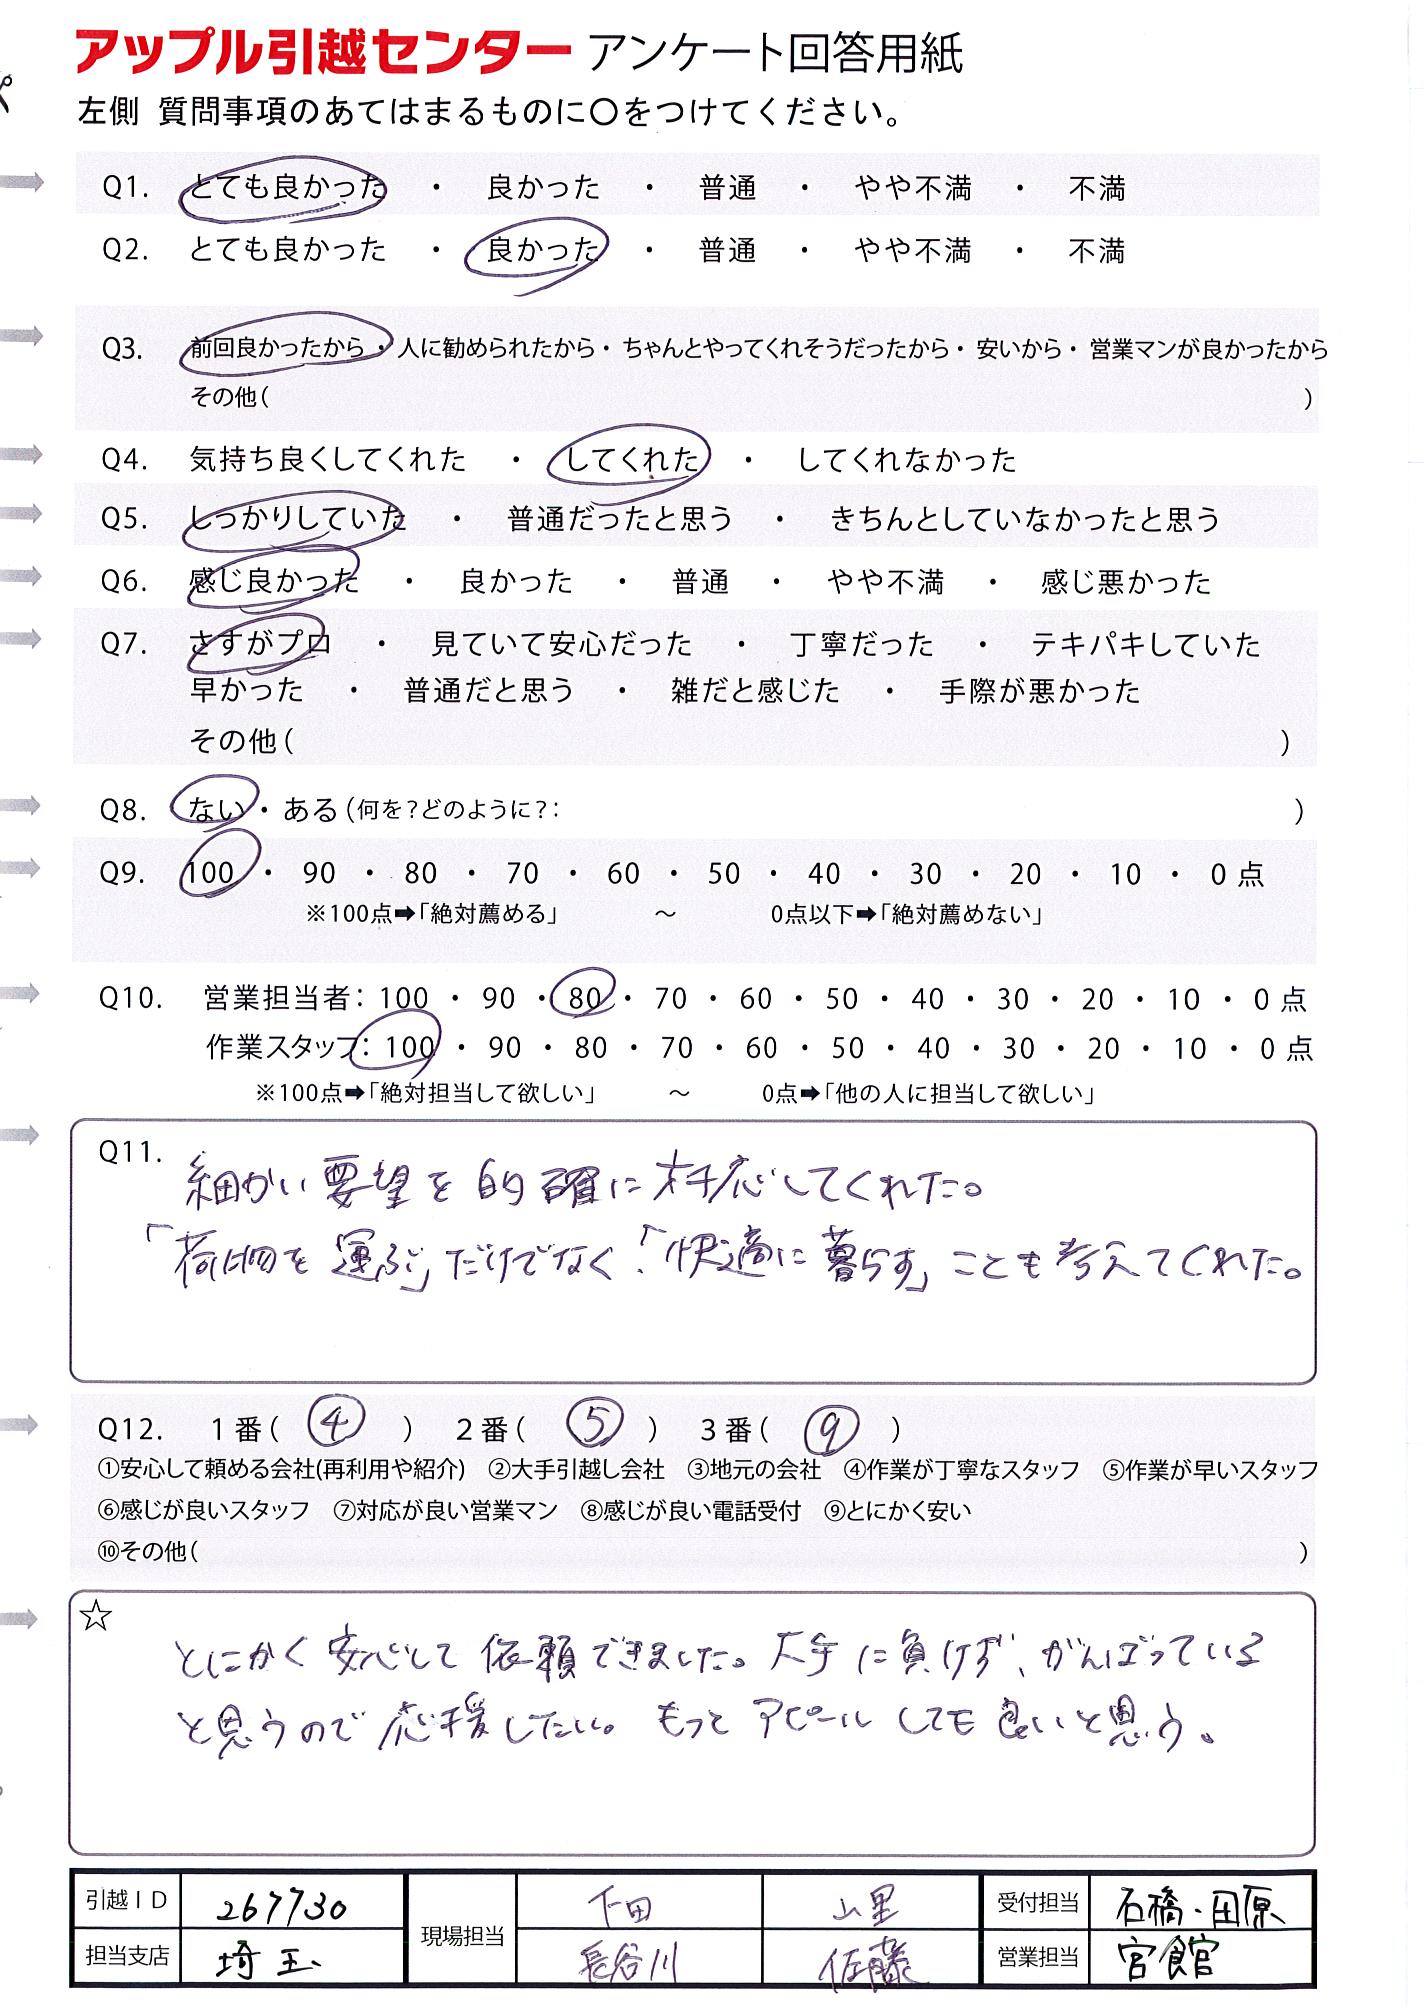 アップル引越センター アンケート回答用紙
左側 質問事項のあてはまるものに〇をつけてください。
Q1. とても良かった ・ 良かった ・ 普通 ・ やや不満 ・ 不満
Q2. とても良かった ・ 良かった ・ 普通 ・ やや不満 ・ 不満
Q3. 前回良かったから ・ 人に勧められたから ・ ちゃんとやってくれそうだったから ・ 安いから ・ 営業マンが良かったから
その他( )
Q4. 気持ち良くしてくれた ・ してくれた ・ してくれなかった
Q5. しっかりしていた ・ 普通だったと思う ・ きちんとしていなかったと思う
Q6. 感じ良かった ・ 良かった ・ 普通 ・ やや不満 ・ 感じ悪かった
Q7. さすがプロ ・ 見ていて安心だった ・ 丁寧だった ・ テキパキしていた
早かった ・ 普通だと思う ・ 雑だと感じた ・ 手際が悪かった
その他( )
Q8. ない ・ ある(何を?どのように?: )
Q9. 100 ・ 90 ・ 80 ・ 70 ・ 60 ・ 50 ・ 40 ・ 30 ・ 20 ・ 10 ・ 0 点
※100点➡「絶対薦める」 ～ 0点以下➡「絶対薦めない」
Q10. 営業担当者: 100 ・ 90 ・ 80 ・ 70 ・ 60 ・ 50 ・ 40 ・ 30 ・ 20 ・ 10 ・ 0 点
作業スタッフ: 100 ・ 90 ・ 80 ・ 70 ・ 60 ・ 50 ・ 40 ・ 30 ・ 20 ・ 10 ・ 0 点
※100点➡「絶対担当して欲しい」 ～ 0点➡「他の人に担当して欲しい」
Q11. 細かい要望を的確に対応してくれた。
「荷物を運ぶ」だけでなく、「快適に暮らす」ことも考えてくれた。
Q12. 1番( ④ ) 2番( ⑤ ) 3番( ⑨ )
①安心して頼める会社(再利用や紹介) ②大手引越し会社 ③地元の会社 ④作業が丁寧なスタッフ ⑤作業が早いスタッフ
⑥感じが良いスタッフ ⑦対応が良い営業マン ⑧感じが良い電話受付 ⑨とにかく安い
⑩その他( )
☆
とにかく安心して依頼できました。大手に負けず、がんばっている
と思うので応援したい。もっとアピールしても良いと思う。
引越ID 267730 現場担当 下田 山里 受付担当 石橋・田原
担当支店 埼玉 長谷川 佐藤 営業担当 宮館